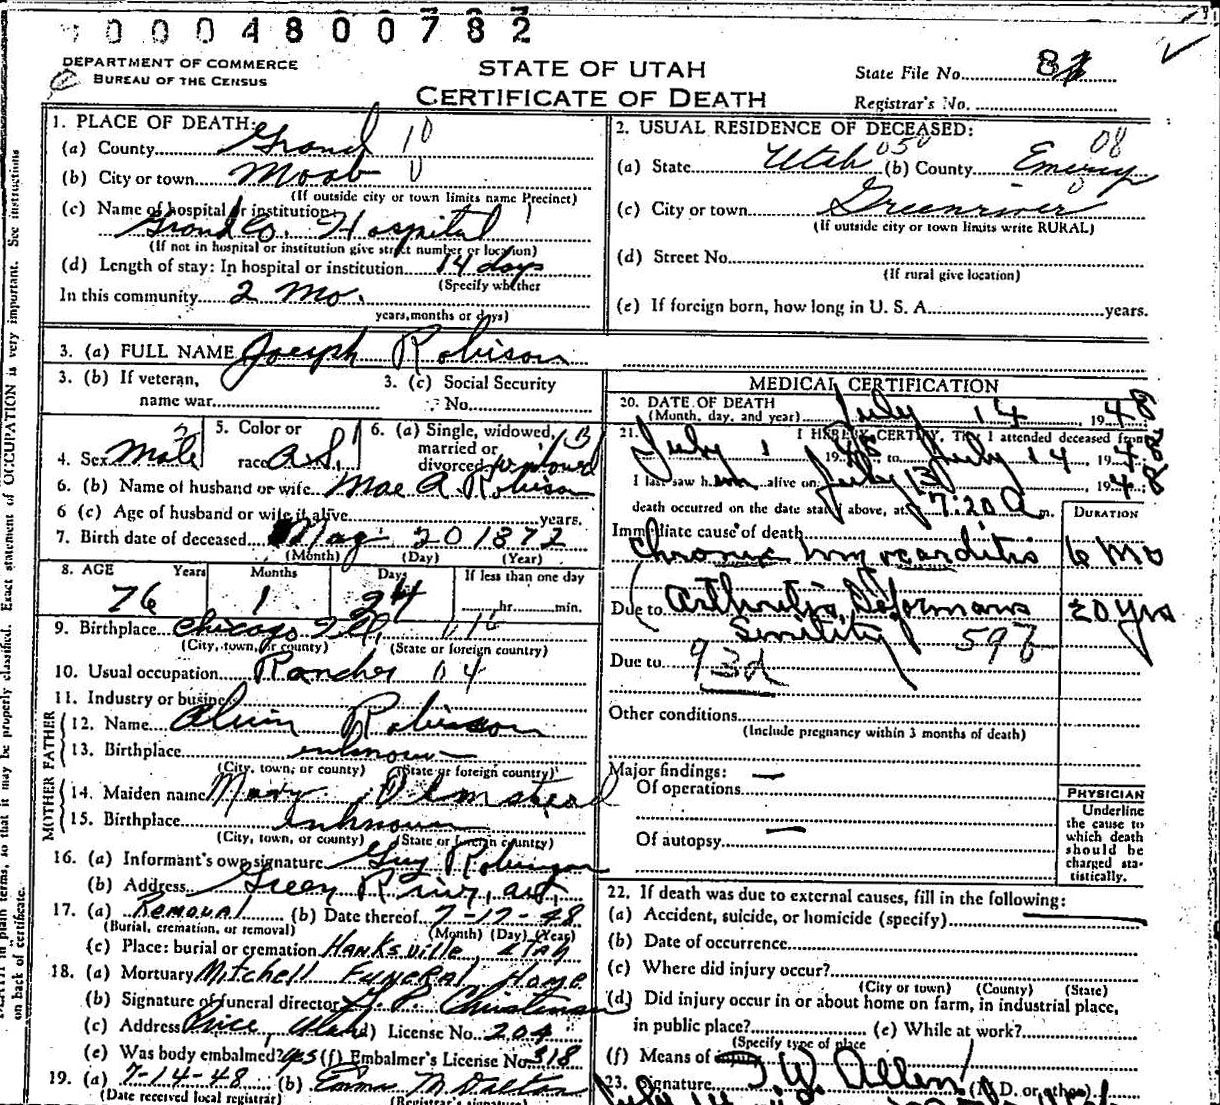 0 0 0 4 8 0 0 7 8 2
DEPARTMENT OF COMMERCE
BUREAU OF THE CENSUS
STATE OF UTAH
CERTIFICATE OF DEATH
State File No. 
Registrar's No.
1. PLACE OF DEATH:
(a) County Grand 10
(b) City or town Moab 0
(If outside city or town limits name Precinct)
(c) Name of hospital or institution:
Grand Co. Hospital
(If not in hospital or institution give street number or location)
(d) Length of stay: In hospital or institution 14 days
(Specify whether
In this community 2 mo.
years, months or days)
2. USUAL RESIDENCE OF DECEASED:
(a) State Utah 050 (b) County Emery 08
(c) City or town Greenriver 0
(If outside city or town limits write RURAL)
(d) Street No.
(If rural give location)
(e) If foreign born, how long in U. S. A. years.
3. (a) FULL NAME Joseph Robison
3. (b) If veteran,
name war
3. (c) Social Security
No.
4. Sex Male
5. Color or
race
6. (a) Single, widowed,
married or
divorced
6. (b) Name of husband or wife Mae A. Robison
6 (c) Age of husband or wife if alive years.
7. Birth date of deceased May 20 1872
(Month) (Day) (Year)
8. AGE Years Months Days If less than one day
76 1 24 hr. min.
9. Birthplace Chicago Ill.
(City, town, or county) (State or foreign country)
10. Usual occupation Rancher 04
11. Industry or business
FATHER
12. Name Alvin Robison
13. Birthplace unknown
(City, town, or county) (State or foreign country)
MOTHER
14. Maiden name Mary Olmstead
15. Birthplace unknown
(City, town, or county) (State or foreign country)
16. (a) Informant's own signature Guy Robinson
(b) Address Green River, Ut.
17. (a) Removal (b) Date thereof 7-17-48
(Burial, cremation, or removal) (Month) (Day) (Year)
(c) Place: burial or cremation Hanksville, Utah
18. (a) Mortuary Mitchell Funeral Home
(b) Signature of funeral director Christensen
(c) Address Price, Utah (d) License No. 204
(e) Was body embalmed? yes (f) Embalmer's License No. 318
19. (a) 7-14-48 (b) Emma M Dalton
(Date received local registrar) (Registrar's signature)
MEDICAL CERTIFICATION
20. DATE OF DEATH
(Month, day, and year) July 14 1948
21. I HEREBY CERTIFY, That I attended deceased from
July 1 1948 to July 14 1948
I last saw him alive on July 13 1948
death occurred on the date stated above, at 7:20 a m.
DURATION
Immediate cause of death
Chronic Myocarditis 6 mo
Due to Arthritis Deformans 20 yrs
Senility 
Due to 93d
Other conditions
(Include pregnancy within 3 months of death)
Major findings: —
Of operations
Of autopsy —
PHYSICIAN
Underline
the cause to
which death
should be
charged sta-
tistically.
22. If death was due to external causes, fill in the following:
(a) Accident, suicide, or homicide (specify)
(b) Date of occurrence
(c) Where did injury occur?
(City or town) (County) (State)
(d) Did injury occur in or about home on farm, in industrial place,
in public place? (e) While at work?
(Specify type of place
(f) Means of
23. Signature Allen (M. D. or other)
in plain terms, so that it may be properly classified. Exact statement of OCCUPATION is very important. See instructions
on back of certificate.